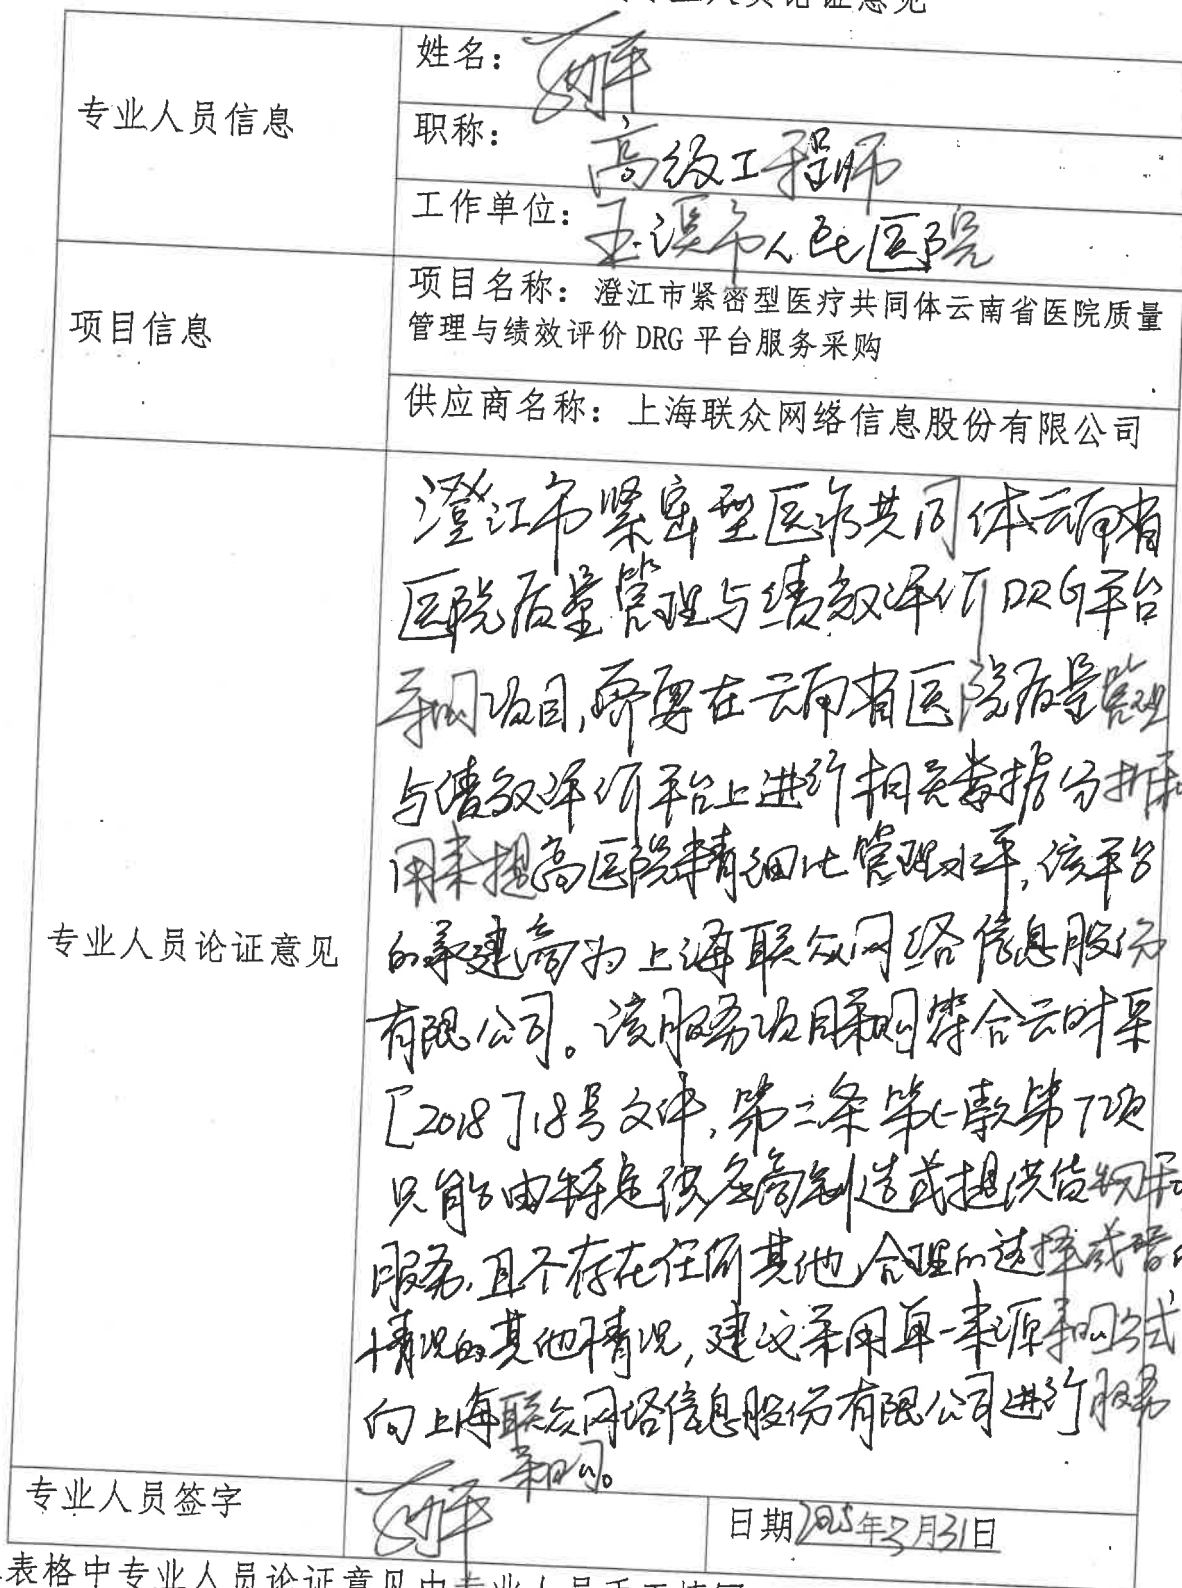 专业人员论证意见
专业人员信息
姓名：
职称：高级工程师
工作单位：玉溪市人民医院
项目信息
项目名称：澄江市紧密型医疗共同体云南省医院质量
管理与绩效评价 DRG 平台服务采购
供应商名称：上海联众网络信息股份有限公司
专业人员论证意见
澄江市紧密型医疗共同体云南省
医院质量管理与绩效评价DRG平台
采购项目,需要在云南省医院质量管理
与绩效评价平台上进行相关数据分析
用来提高医院精细化管理水平,该平台
的承建商为上海联众网络信息股份
有限公司。该服务项目采购符合云财采
[2018]18号文件,第二条第(一)款第7项
只能由特定供应商制造或提供货物和
服务,且不存在任何其他合理的选择或替代
情况的其他情况,建议采用单一来源采购方式
向上海联众网络信息股份有限公司进行服务
采购。
专业人员签字
日期2025年3月31日
表格中专业人员论证意见由专业人员手工填写